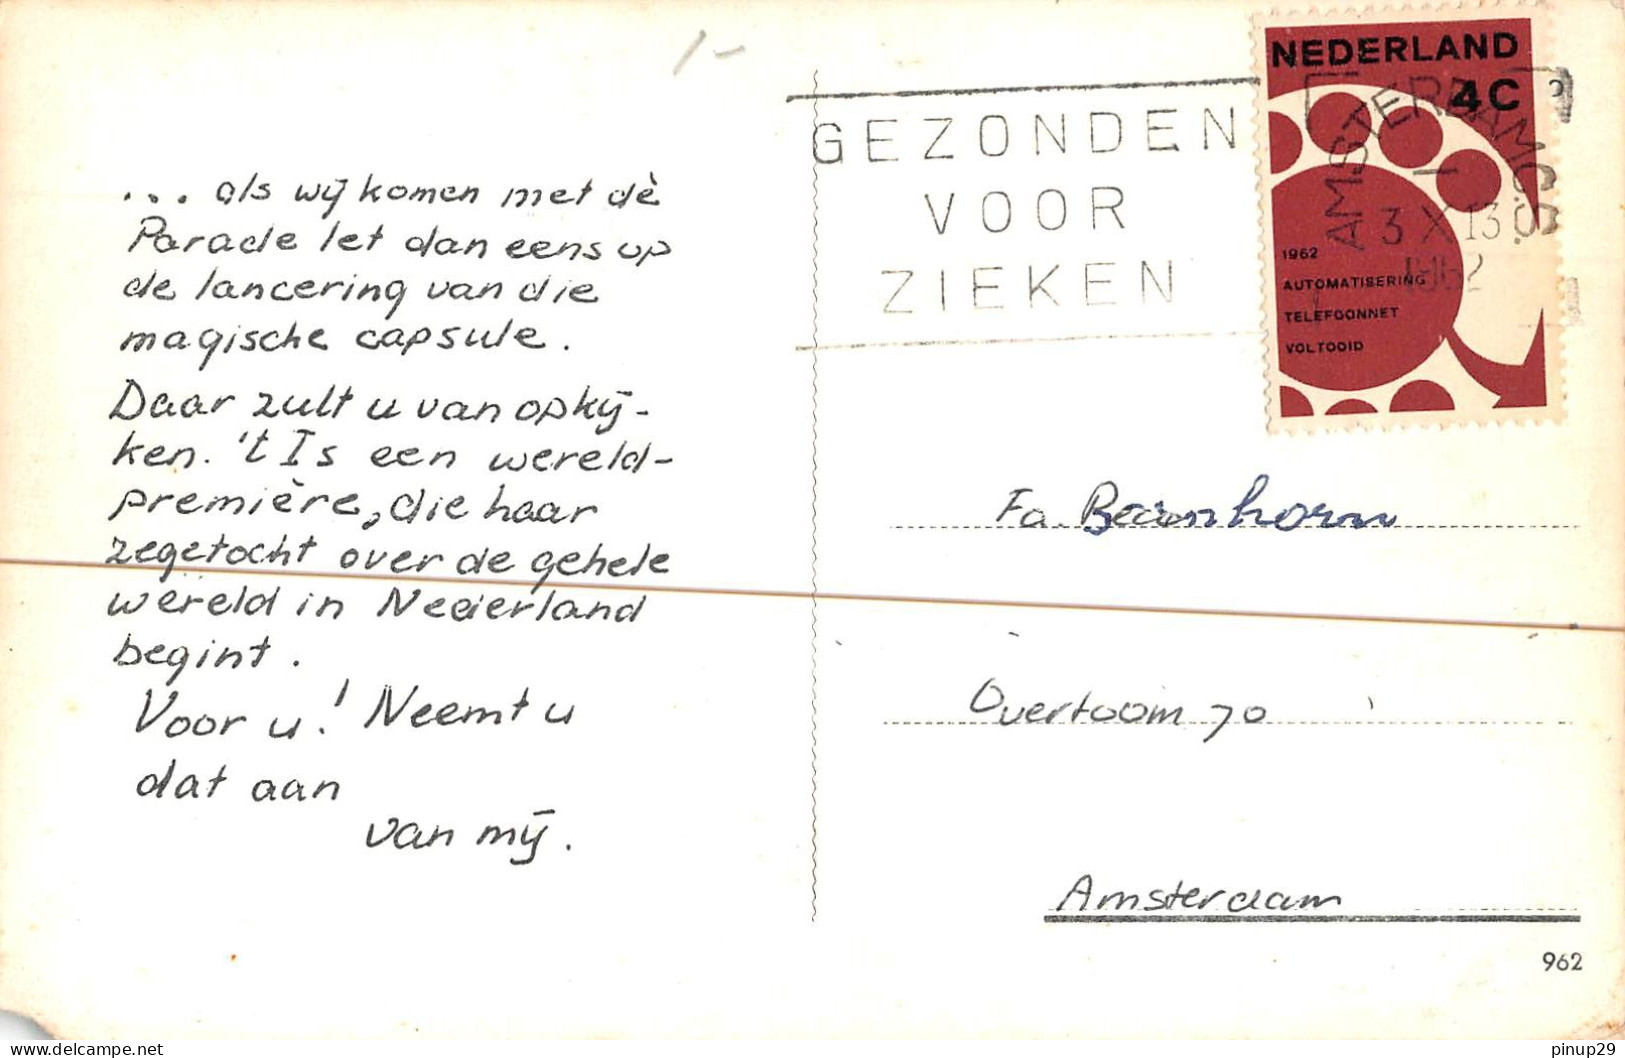 1-
... als wij komen met dè
Parade let dan eens op
de lancering van die
magische capsule.
Daar zult u van opkij-
ken. 't Is een wereld-
première, die haar
zegetocht over de gehele
wereld in Nederland
begint.
Voor u! Neemt u
dat aan
van mij.
GEZONDEN
VOOR
ZIEKEN
NEDERLAND
4C
AMSTERDAM C.S.
3 X 13
1962
1962
AUTOMATISERING
TELEFOONNET
VOLTOOID
Fa.
Overtoom 70
Amsterdam
962
delcampe.net
pinup29